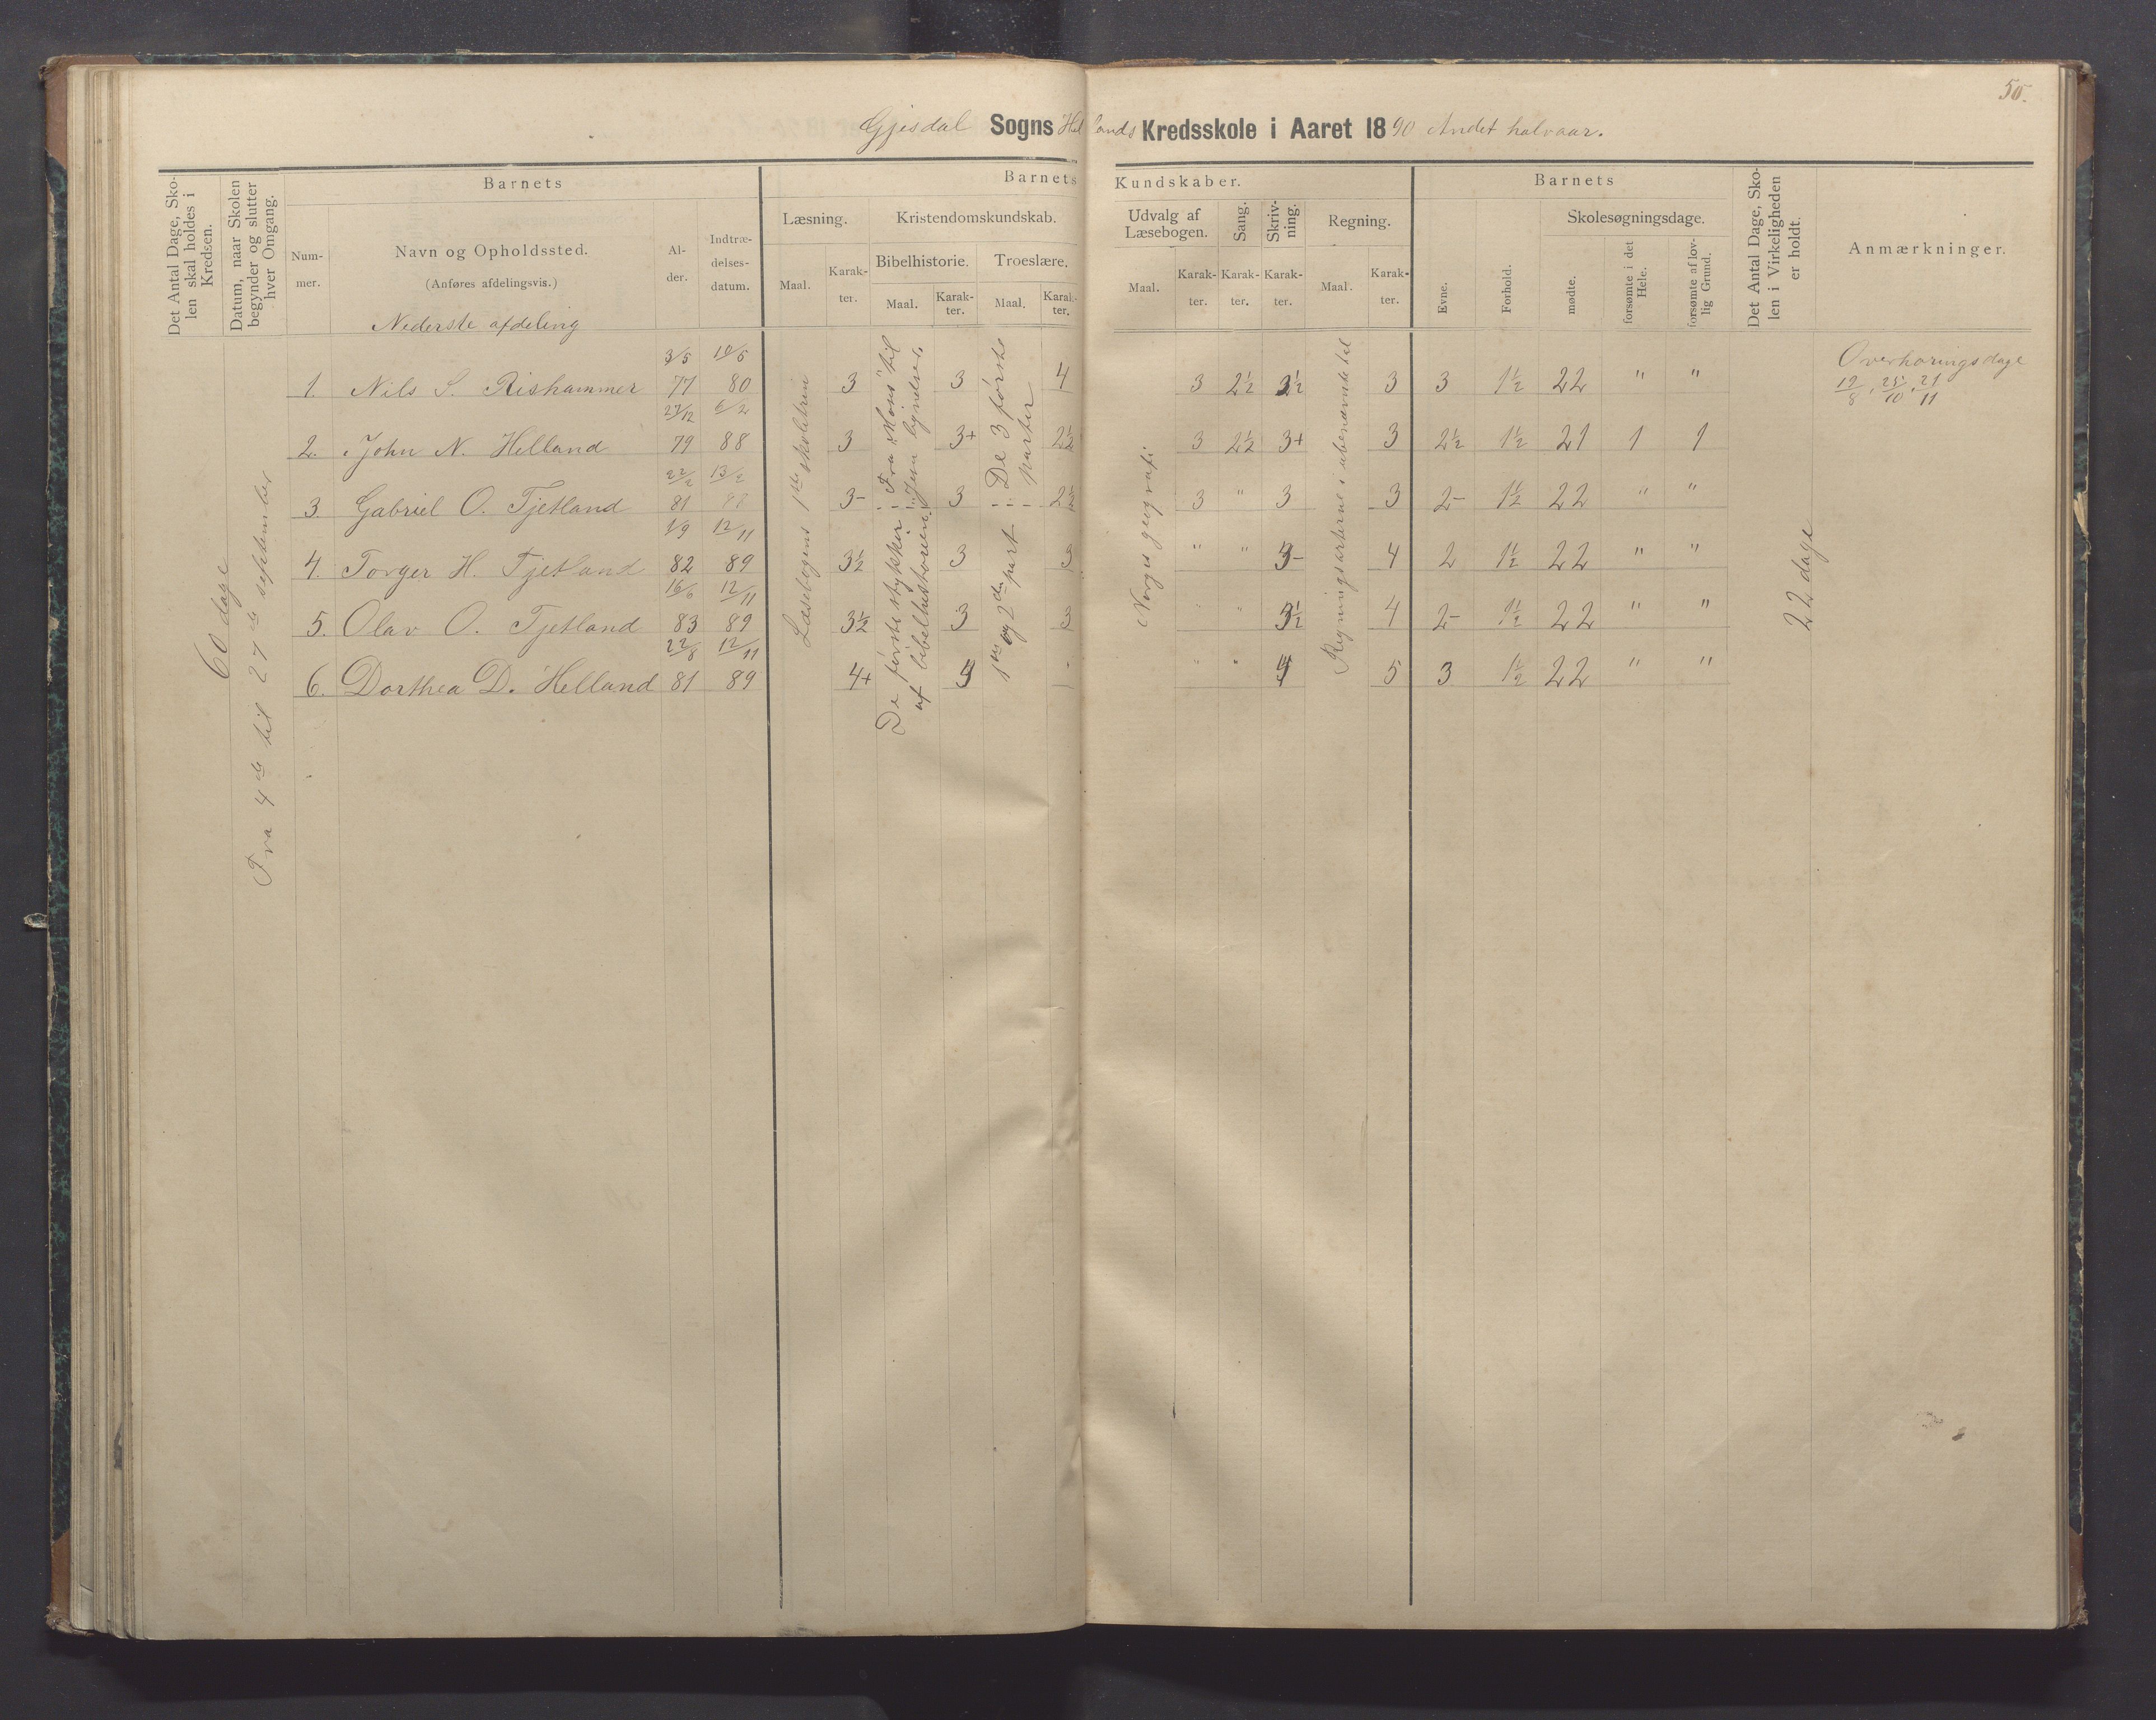 50.
Gjesdal Sogns Hellands Kredsskole i Aaret 1890 Andet halvaar.
Det Antal Dage, Sko-
len skal holdes i
Kredsen.
Datum, naar Skolen
begynder og slutter
hver Omgang.
Barnets
Num-
mer.
Navn og Opholdssted.
(Anføres afdelingsvis.)
Al-
der.
Indtræ-
delses-
datum.
Barnets Kundskaber.
Læsning.
Maal.
Karak-
ter.
Kristendomskundskab.
Bibelhistorie.
Maal.
Karak-
ter.
Troeslære.
Maal.
Karak-
ter.
Udvalg af
Læsebogen.
Maal.
Karak-
ter.
Sang.
Karak-
ter.
Skriv-
ning.
Karak-
ter.
Regning.
Maal.
Karak-
ter.
Barnets
Evne.
Forhold.
Skolesøgningsdage.
mødte.
forsømte i det
Hele.
forsømte af lov-
lig Grund.
Det Antal Dage, Sko-
len i Virkeligheden
er holdt.
Anmærkninger.
Nederste afdeling
60 dage
Fra 4de til 27de september
Læsebogens 1ste skoletrin
Fra "Mons" til
Jesu lignelser.
De første stykker
af bibelhistorien.
De 3 første
parter
1ste og 2den part
Norges geografi
Regningsarterne i ubenævnte tal
22 dage
Overhøringsdage
19/8, 25/10, 21/11
3/5 10/5
1. Nils S. Rishammer 77 80 3 3 4 3 2½ 3½ 3 3 1½ 22 " "
27/12 6/2
2. John N. Helland 79 88 3 3+ 2½ 3 2½ 3+ 3 2½ 1½ 21 1 1
22/2 13/2
3. Gabriel O. Tjetland 81 88 3- 3 2½ 3 " 3 3 2- 1½ 22 " "
1/9 12/11
4. Torger H. Tjetland 82 89 3½ 3 3 " " 3- 4 2 1½ 22 " "
16/6 12/11
5. Olav O. Tjetland 83 89 3½ 3 3 " " 3½ 4 2- 1½ 22 " "
22/8 12/11
6. Dorthea D. Helland 81 89 4+ " " 4 5 3 1½ 22 " "